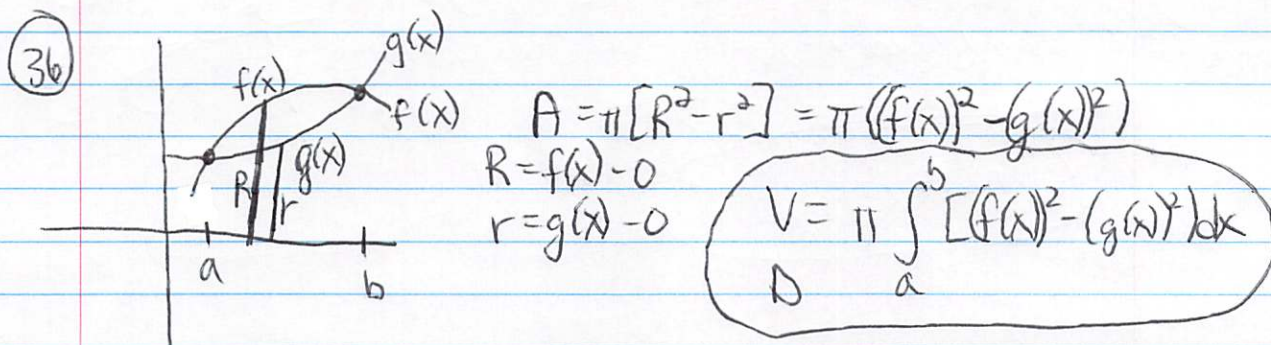 36
g(x)
f(x)
f(x)
g(x)
R
r
a
b
A = π[R² - r²] = π((f(x))² - (g(x))²)
R = f(x) - 0
r = g(x) - 0
V = π ∫ₐᵇ [(f(x))² - (g(x))²)dx
D